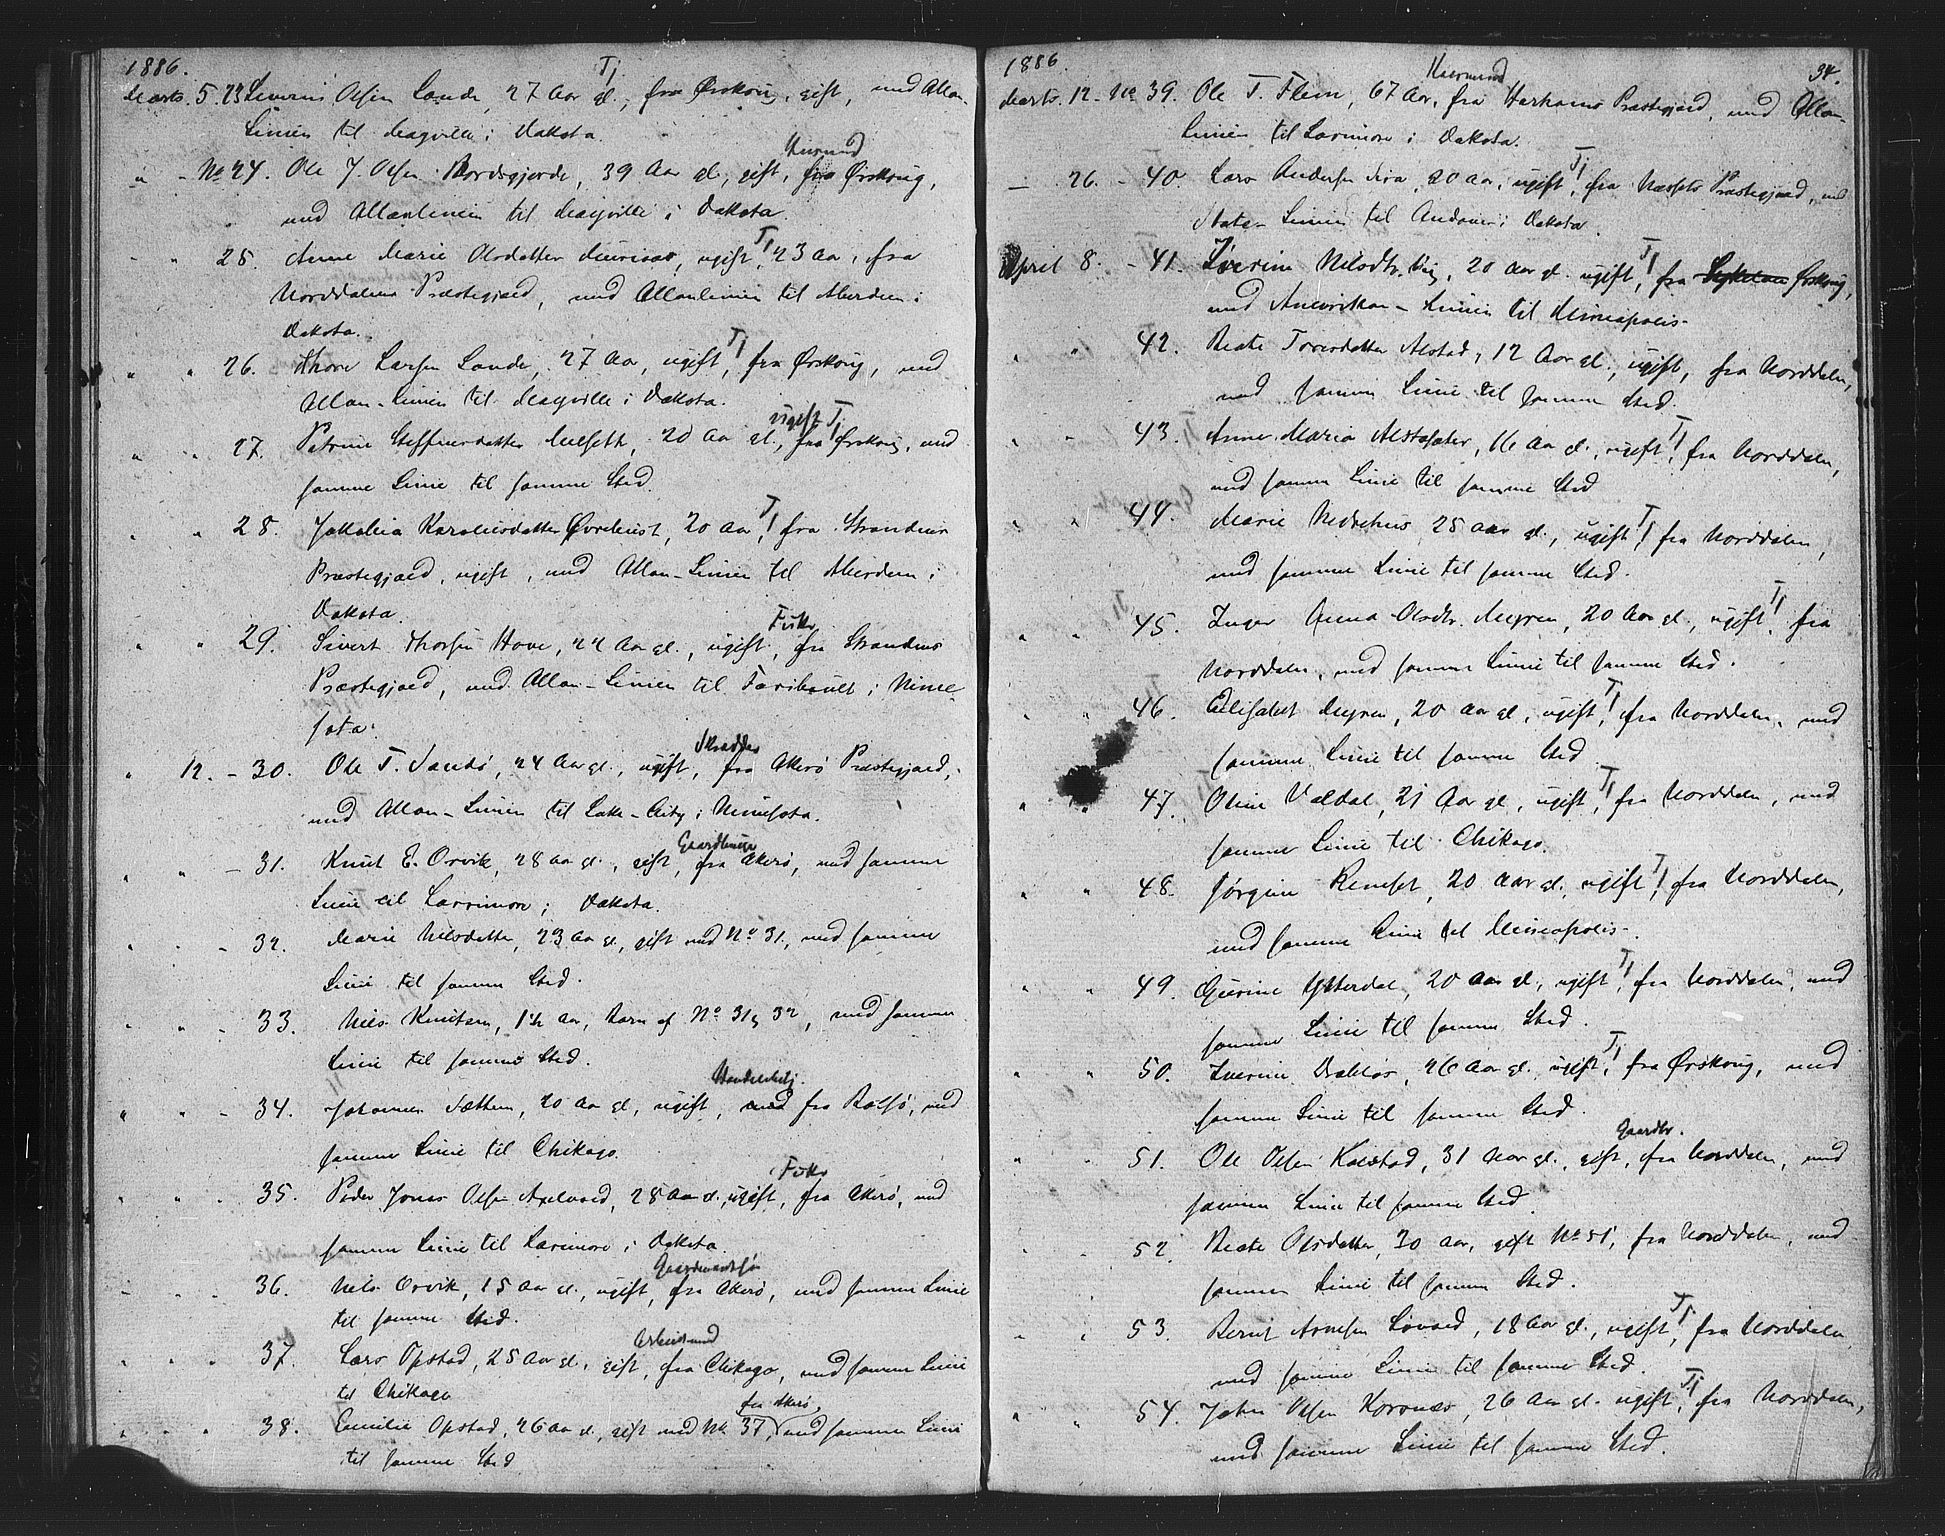 1886.
Tj
Marts. 5. 23 Severin Olsen Lande, 27 Aar gl., fra Ørskoug, gift, med Allan-
Linien til Mayville i Dakota.
Huusmand
" - No 24. Ole J. Olsen 39 Aar gl., gift, fra Ørskoug,
med Allanlinien til Mayville i Dakota.
Tj
" " 25. Anne Marie Olsdatter ugift, 23 Aar, fra
Norddalens Præstegjæld, med Allanlinien til Aberdeen i
Dakota.
Tj
" " 26. Thore Larsen Lande, 27 Aar, ugift, fra Ørskoug, med
Allan-Linien til Mayville i Dakota.
ugift Tj
" " 27. Petrine Steffensdatter 20 Aar gl., fra Ørskoug, med
samme Linie til samme Sted.
Tj
" " 28. Jakobia Karolusdatter Øvrehust, 20 Aar, fra Strandens
Præstegjæld, ugift, med Allan-Linien til Aberdeen i
Dakota.
" " 29. Sivert Thorsen Hove, 24 Aar gl., ugift, fra Strandens
Præstegjæld, med Allan-Linien til Faribault i Minne-
sota.
Skrædder
" 12. - 30. Ole T. Sandø, 24 Aar gl., ugift, fra Akerø Præstegjæld,
med Allan-Linien til Lake-City i Minnesota.
Gaardbruger
" " - 31. Knut E. Orvik, 28 Aar gl., gift, fra Akerø, med samme
Linie til Larrimore i Dakota.
" " - 32. Marie Nilsdatter, 23 Aar gl., gift med No 31., med samme
Linie til samme Sted.
" " - 33. Nils Knutsen, 1½ Aar, barn af No 31 & 32, med samme
Linie til samme Sted.
Handelsbetj.
" " - 34. Johannes Sættem, 20 Aar gl., ugift, fra Bolsø, med
samme Linie til Chikago.
" " " 35. Peder Jonas Olsen 28 Aar gl., ugift, fra Akerø, med
samme Linie til Larimore i Dakota.
Gaardmandssøn
" " " 36. Nils Orvik, 15 Aar gl., ugift, fra Akerø, med samme Linie
til samme Sted.
Arbeidsmand
" " " 37. Lars Opstad, 25 Aar gl., gift, fra Chikago, med samme Linie
til Chikago
fra Akerø,
" " " 38. Emilie Opstad, 26 Aar gl., gift med No. 37, med samme Linie
til samme Sted
1886.
34.
Huusmand
Marts. 12 - No 39. Ole T. Flem, 67 Aar, fra Harhams Præstegjæld, med Allan-
Linien til Larimore i Dakota.
Tj
— " 26. - 40. Lars Andersen 20 Aar, ugift, fra Næssets Præstegjæld, med
State-Linien til Andover i Dakota.
Tj
April 8. - 41. Iverine Nilsdtr. 20 Aar gl. ugift, fra Ørskoug,
med Amerikan-Linien til Minneapolis-
" " 42. Beate Toresdatter Alstad, 12 Aar gl., ugift, fra Norddalen,
med samme Linie til samme Sted.
Tj
" " 43. Anne Maria 16 Aar gl., ugift, fra Norddalen,
med samme Linie til samme Sted
Tj
" " 44. Marie Nedrehus, 25 Aar gl., ugift, fra Norddalen,
med samme Linie til samme Sted.
Tj
" " 45. Inger Anna Olsdtr. Myren, 20 Aar gl., ugift, fra
Norddalen, med samme Linie til samme Sted.
Tj
" " 46. Elisabet Myren, 20 Aar gl., ugift, fra Norddalen, med
samme Linie til samme Sted
Tj
" " 47. Oline Valdal, 21 Aar gl., ugift, fra Norddalen, med
samme Linie til Chikago.
Tj
" " 48. Jørgine Remset, 20 Aar gl., ugift, fra Norddalen,
med samme Linie til Minneapolis-.
Tj
" " 49. Gurine Ytterdal, 20 Aar gl., ugift, fra Norddalen, med
samme Linie til samme Sted.
Tj
" " 50. Iverine Drabløs, 26 Aar gl., ugift, fra Ørskoug, med
samme Linie til samme Sted.
Gaardbr.
" " 51. Ole Olsen Kolstad, 31 Aar gl., gift, fra Norddalen, med
samme Linie til samme Sted.
" " 52. Beate Olsdatter, 30 Aar, gift No 51, fra Norddalen, med
samme Linie til samme Sted.
Tj
" " 53. Bernt Arnesen Løvoed, 18 Aar gl., ugift, fra Norddalen
med samme Linie til samme Sted.
Tj
" " 54. John Olsen Korsnæs, 26 Aar gl. ugift, fra Norddalen,
med samme Linie til samme Sted.